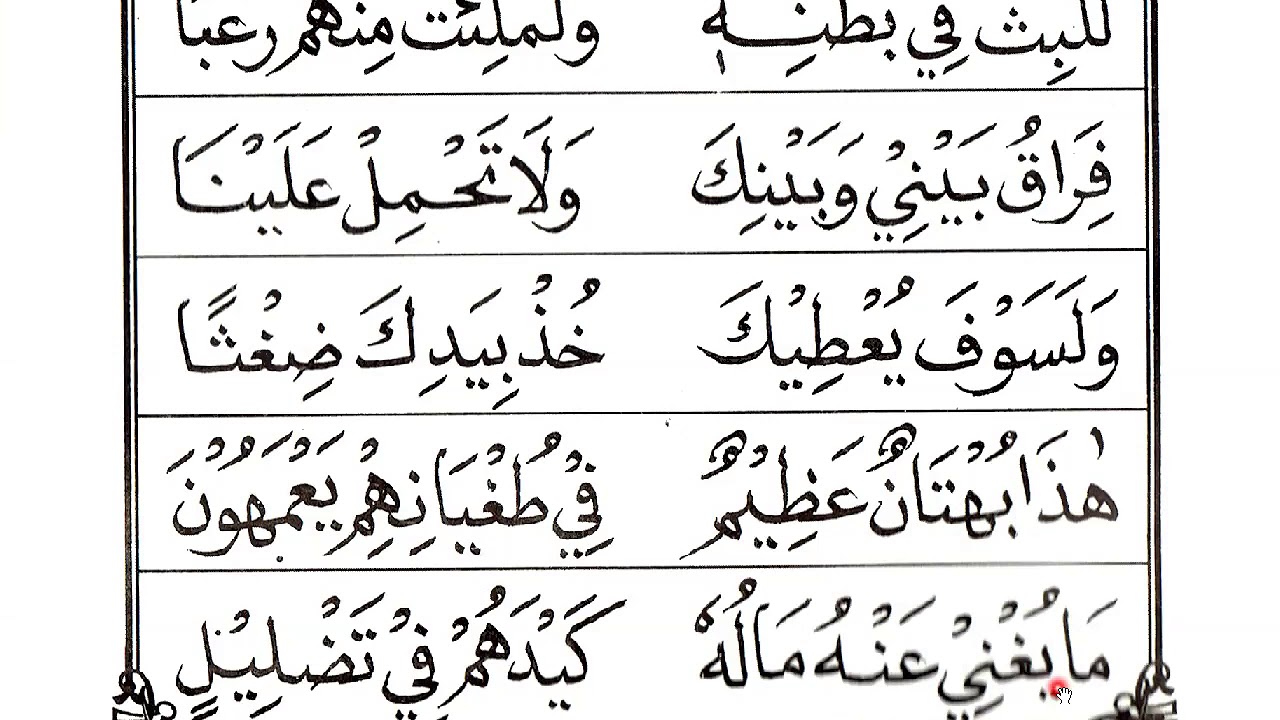 لَلَبِثَ فِي بَطْنِهٖ وَلَمُلِئْتَ مِنْهُمْ رُعْبًا
فِرَاقُ بَيْنِيْ وَبَيْنِكَ وَلَا تَحْمِلْ عَلَيْنَا
وَلَسَوْفَ يُعْطِيْكَ خُذْ بِيَدِكَ ضِغْثًا
هٰذَا بُهْتَانٌ عَظِيْمٌ فِيْ طُغْيَانِهِمْ يَعْمَهُوْنَ
مَا يُغْنِيْ عَنْهُ مَالُهٗ كَيْدَهُمْ فِيْ تَضْلِيْلٍ